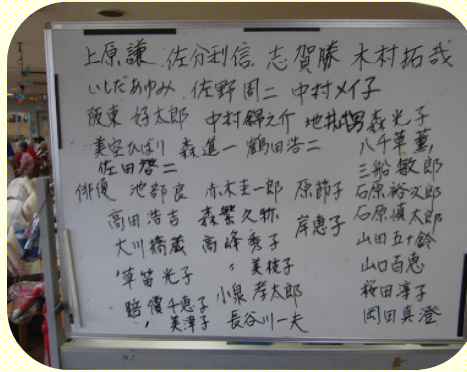 上原謙 佐分利信 志賀勝 木村拓哉
いしだあゆみ 佐野周二 中村メイ子
阪東好太郎 中村錦之介 森光子
美空ひばり 森進一 鶴田浩二 八千草薫
佐田啓二 三船敏郎
俳優 池部良 赤木圭一郎 原節子 石原裕次郎
高田浩吉 森繁久弥 岸恵子 石原慎太郎
大川橋蔵 高峰秀子 山田五十鈴
草笛光子 〃 美枝子 山口百恵
賠償千恵子 小泉孝太郎 桜田淳子
〃 美津子 長谷川一夫 岡田真澄